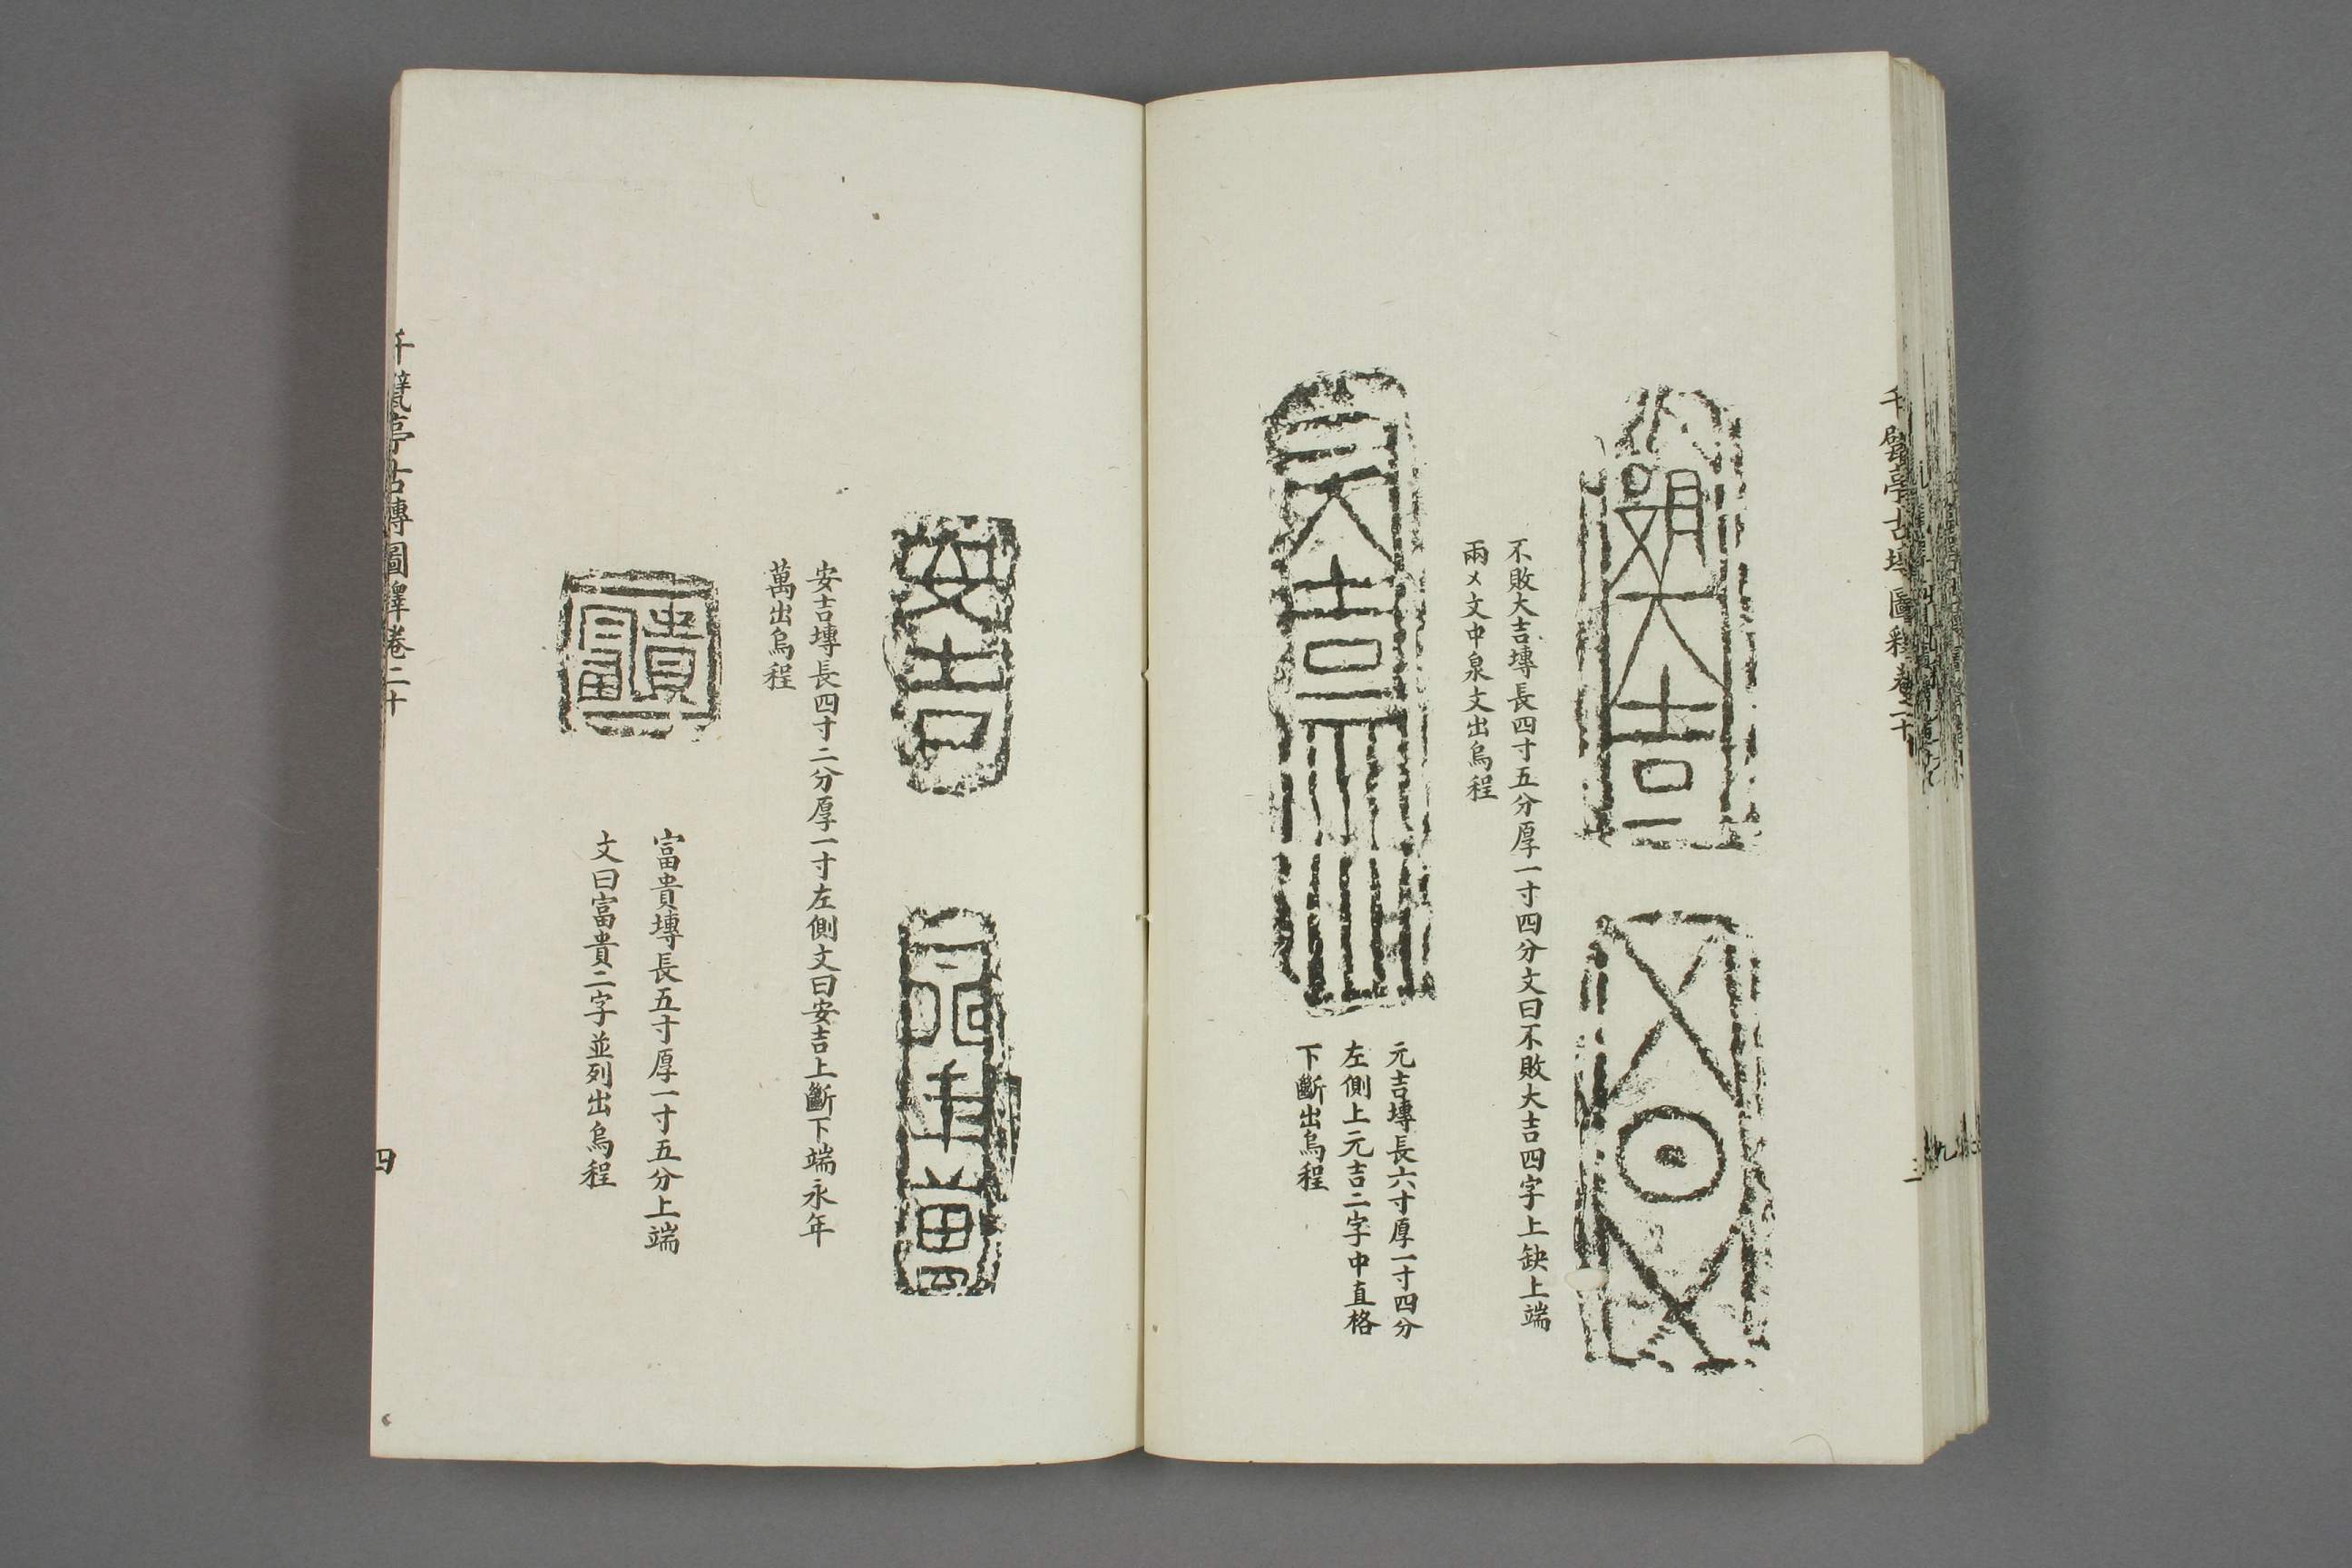 千甓亭古塼圖釋卷二十
敗大吉
不敗大吉塼長四寸五分厚一寸四分文曰不敗大吉四字上缺上端
兩㐅文中泉文出烏程
元吉
元吉塼長六寸厚一寸四分
左側上元吉二字中直格
下斷出烏程
安吉
永年萬
安吉塼長四寸二分厚一寸左側文曰安吉上斷下端永年
萬出烏程
貴富
富貴塼長五寸厚一寸五分上端
文曰富貴二字並列出烏程
千甓亭古塼圖釋卷二十
四